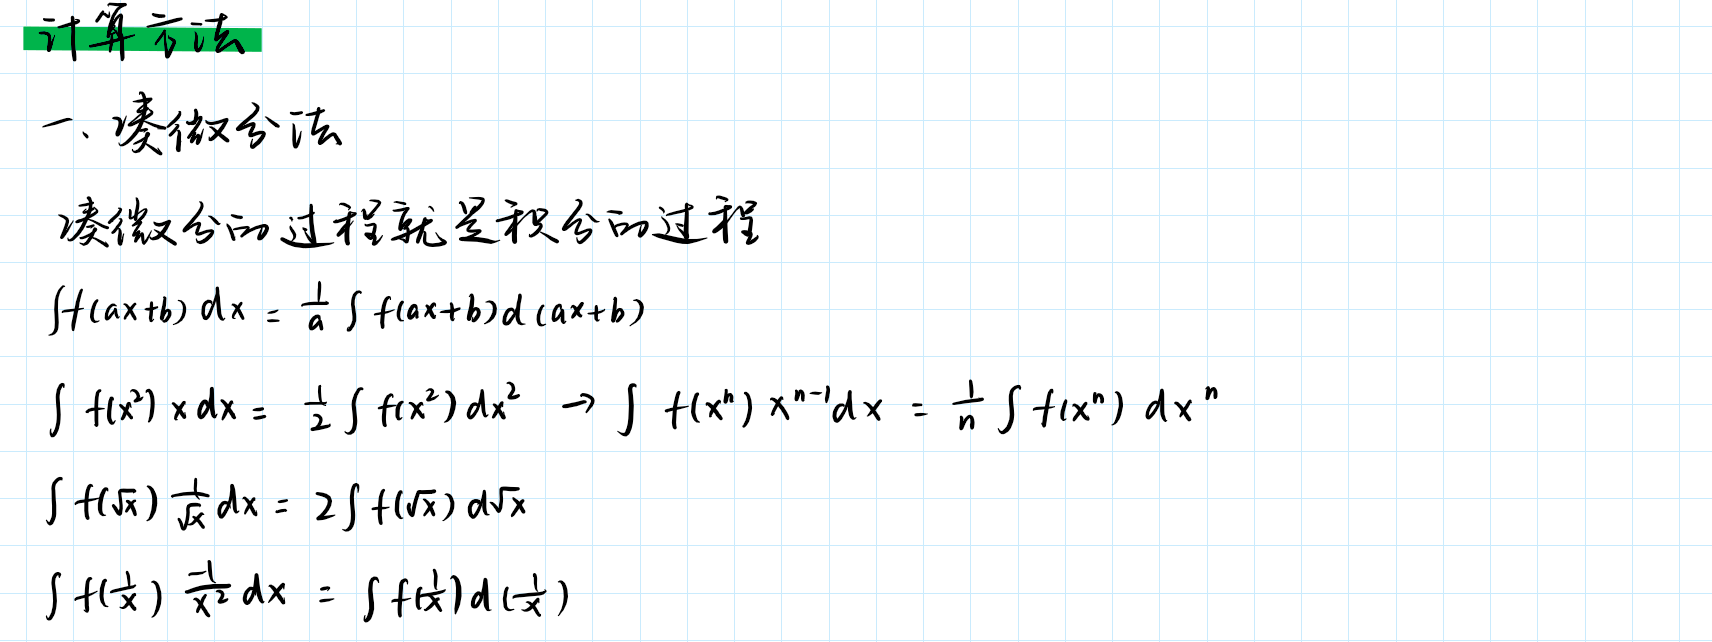 计算方法
一、凑微分法
凑微分的过程就是积分的过程
∫f(ax+b) dx = 1/a ∫ f(ax+b) d(ax+b)
∫ f(x²) x dx = 1/2 ∫ f(x²) dx² → ∫ f(xⁿ) xⁿ⁻¹ dx = 1/n ∫ f(xⁿ) dxⁿ
∫ f(√x) 1/√x dx = 2∫ f(√x) d√x
∫ f(1/x) -1/x² dx = ∫ f(1/x) d(1/x)